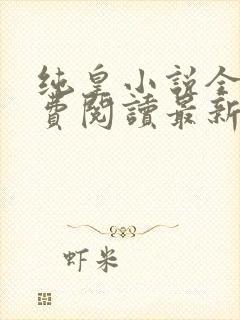 纯皇小说全
费閱讀最新
虾米